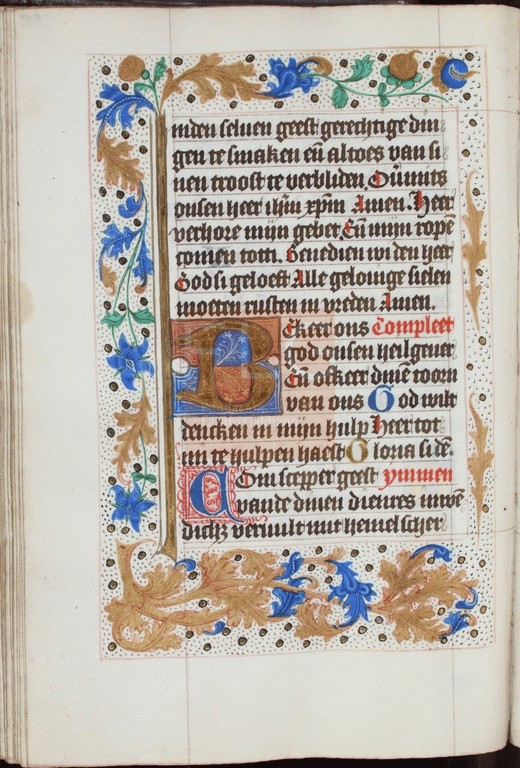 inden seluen geest gerechtige din
gen te smaken en̄ altoes van si
nen troost te verbliden Ou͞mits
onsen heer ih̄m xp̄m Amen. Heer
verhore mijn gebet En̄ mijn ropē
comen totti. Benedien wi den heer
God si geloeft Alle gelouige sielen
moeten rusten in vreden Amen.
BEkeer ons Compleet
god onsen heilgeuer
En̄ ofkeer dinē toorn
van ons God wilt
dencken in mijn hulp Heer tot
mi te hulpen haest Gloria si dē.
COm scepper geest ymmen
vande dinen dienres inwē
dich vervult mit hemelscher